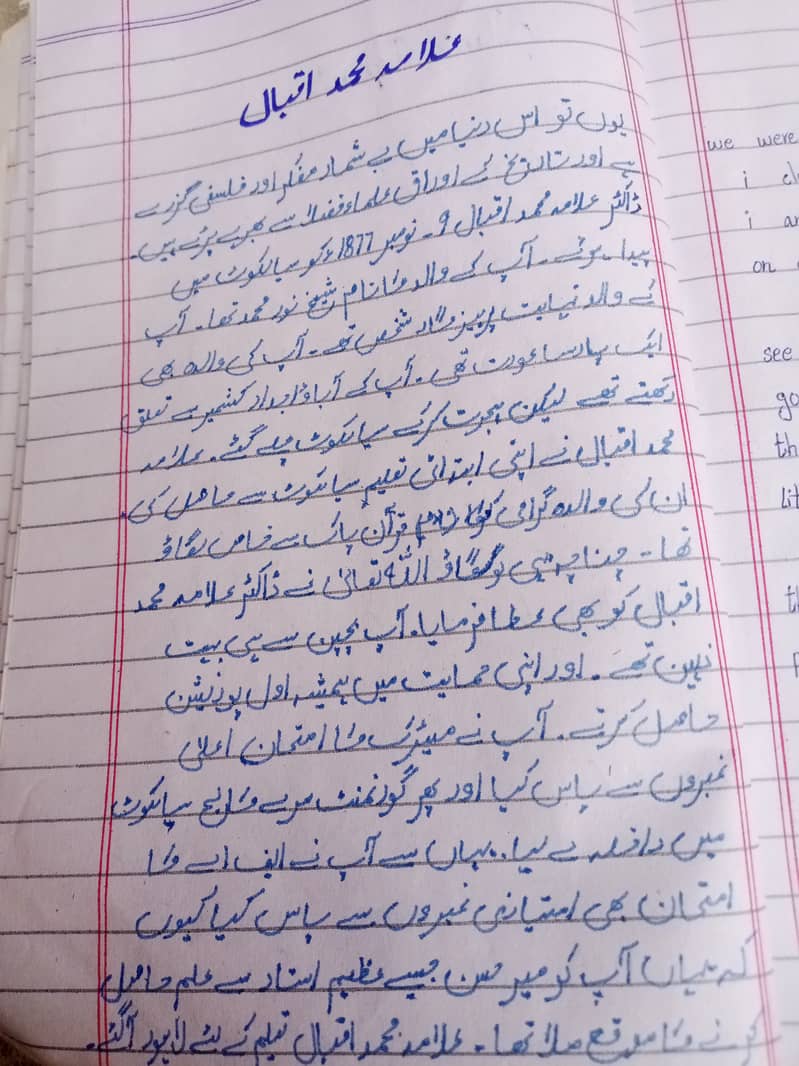 علامہ محمد اقبال
یوں تو اس دنیا میں بے شمار مفکر اور فلسفی گزرے
ہے اور تاریخ کے اوراق علماء فضلا سے بھرے پڑے ہیں۔
ڈاکٹر علامہ محمد اقبال 9۔ نومبر 1877ء کو سیالکوٹ میں
پیدا ہوئے۔ آپ کے والد کا نام شیخ نور محمد تھا۔ آپ
کے والد نہایت پرہیزگار شخص تھے۔ آپ کی والدہ بھی
ایک پارسا عورت تھی۔ آپ کے آباؤ اجداد کشمیر سے تعلق
رکھتے تھے لیکن ہجرت کرکے سیالکوٹ چلے گئے۔ علامہ
محمد اقبال نے اپنی ابتدائی تعلیم سیالکوٹ سے حاصل کی۔
ان کی والدہ گرامی کو قرآن پاک سے خاص لگاؤ
تھا۔ چنانچہ یہی لگاؤ اللہ تعالیٰ نے ڈاکٹر علامہ محمد
اقبال کو بھی عطا فرمایا۔ آپ بچپن سے ہی بہت
تھے۔ اور اپنی جماعت میں ہمیشہ اول پوزیشن
حاصل کرتے۔ آپ نے میٹرک کا امتحان اعلیٰ
نمبروں سے پاس کیا اور پھر گورنمنٹ مرے کالج سیالکوٹ
میں داخلہ لے لیا۔ یہاں سے آپ نے ایف اے کا
امتحان بھی امتیازی نمبروں سے پاس کیا کیوں
کہ یہاں آپ کو میر حسن جیسے عظیم استاد سے علم حاصل
کرنے کا موقع ملا تھا۔ علامہ محمد اقبال تعلیم کے لئے لاہور آگئے۔
we were
i
i
on
see